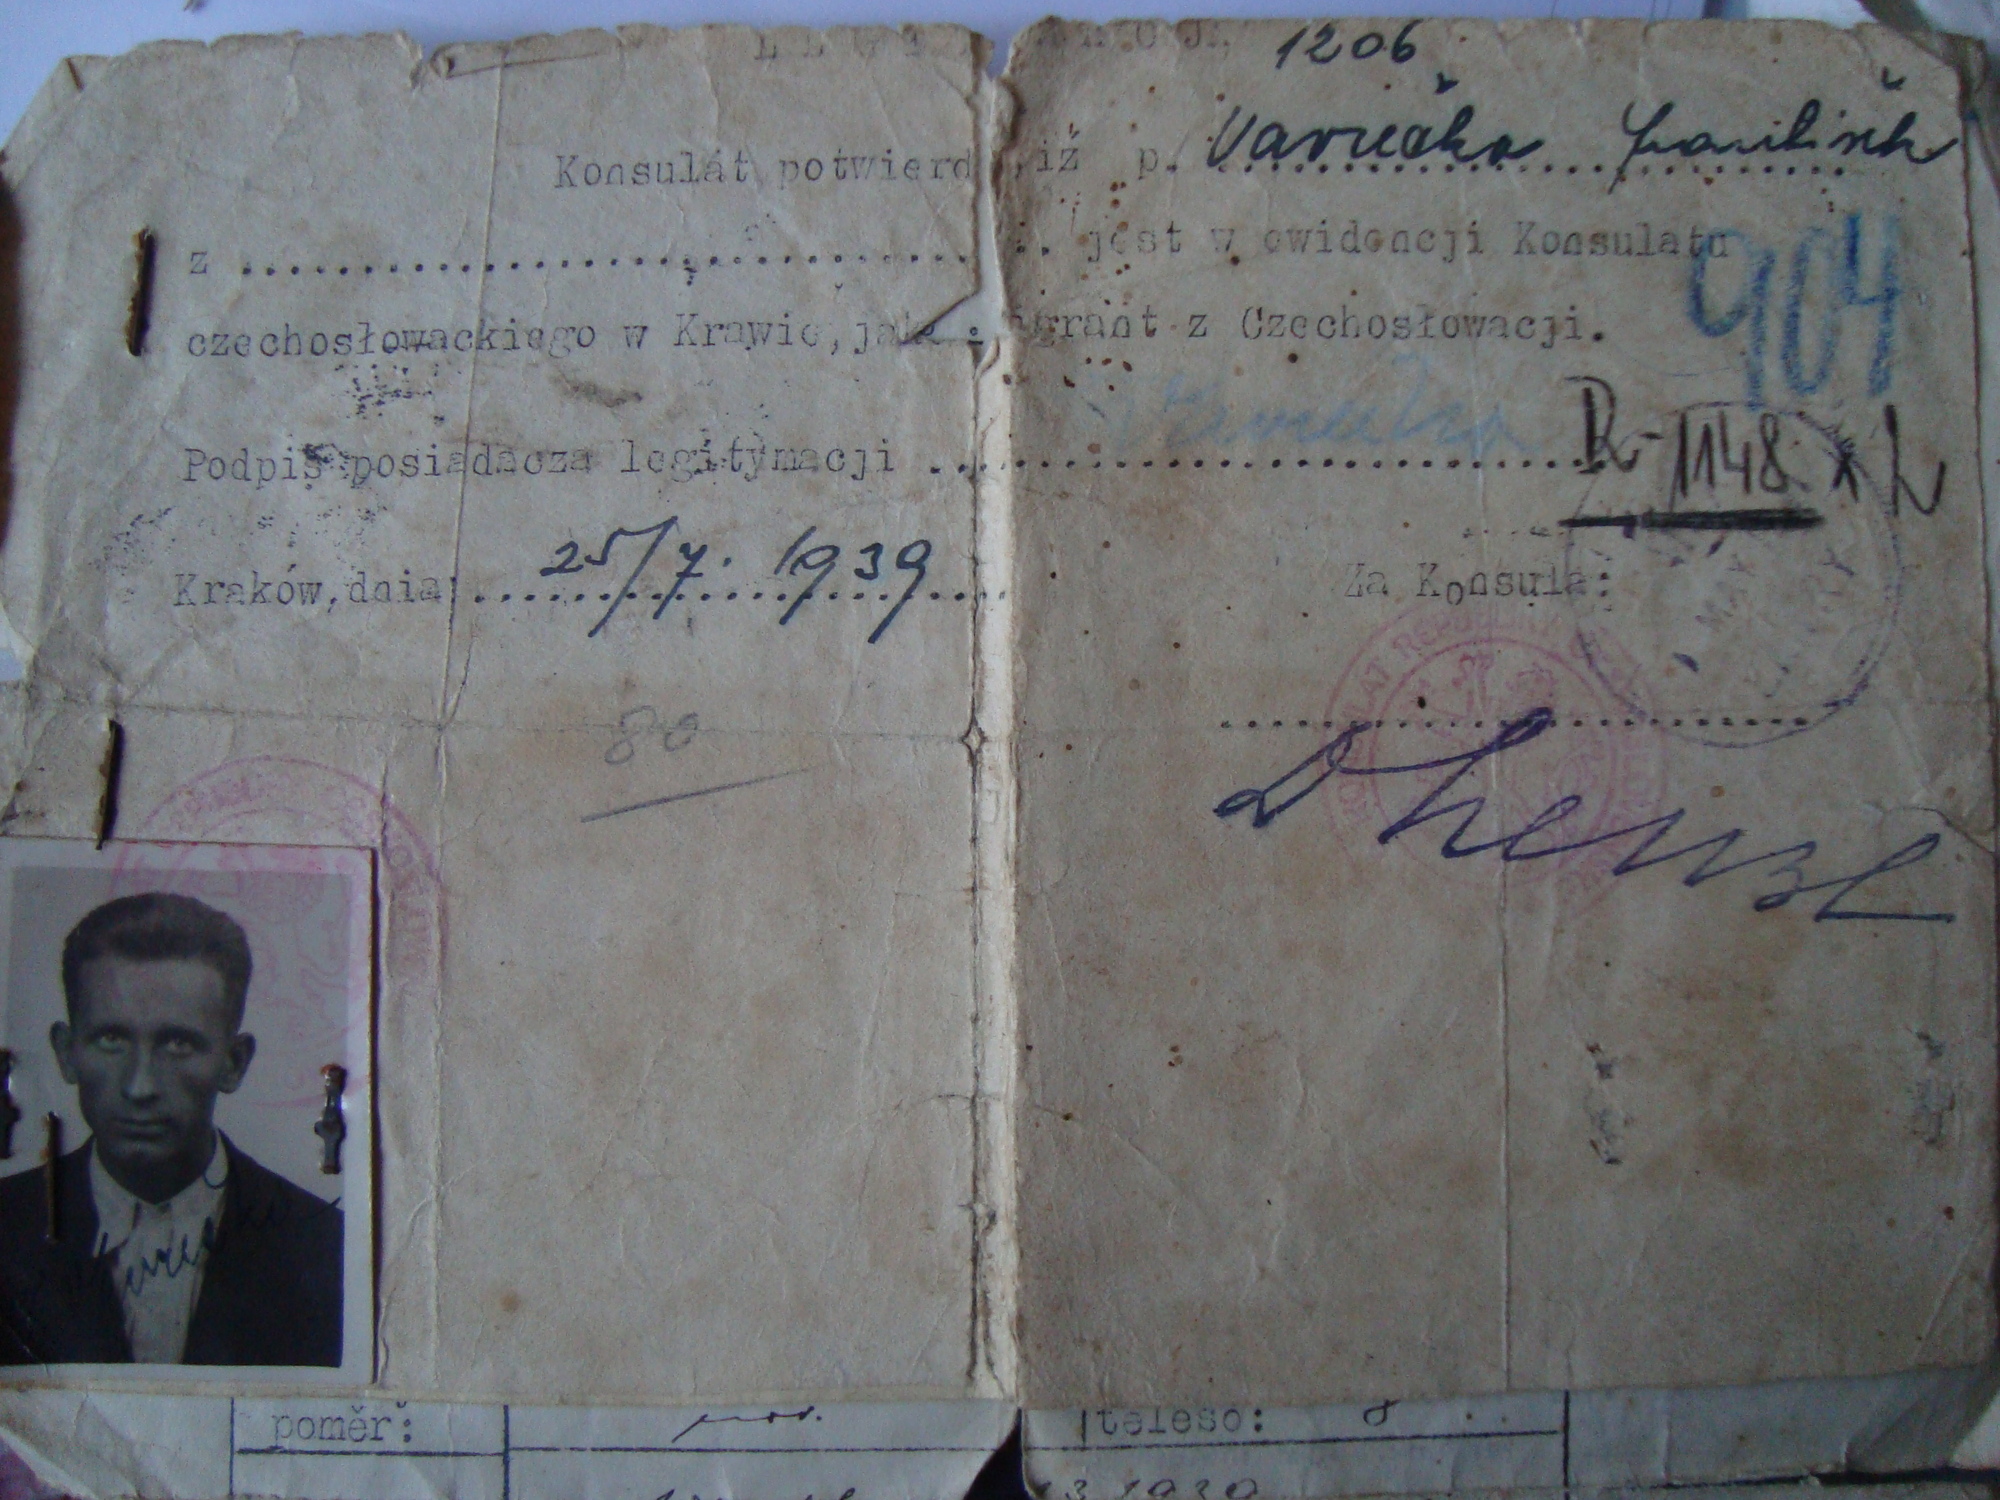 1206
Konsulát potwierd iż p. Vavrečka František
z .................................. jest w ewidencji Konsulatu
904
czechosłowackiego w Krawie, jako emigrant z Czechosłowacji.
Podpis posiadacza legitymacji ..............................
R-1148
Kraków, dnia 25/7. 1939
Za Konsula:
80
poměr:
těleso: